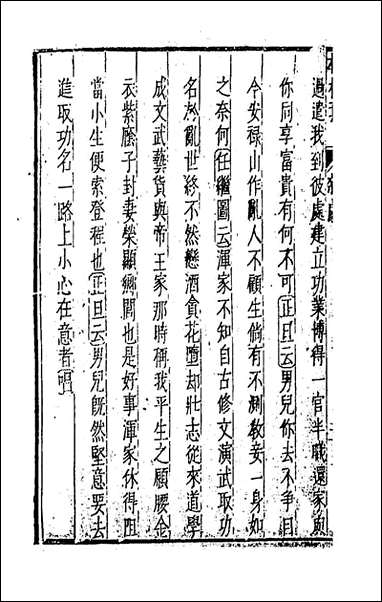 過遣我到彼處建立功業博得一官半職還家與
你同享富貴有何不可正旦云男兒你去不爭目
今安祿山作亂人不顧生倘有不測教妾一身如
之奈何任繼圖云渾家不知自古修文演武取功
名於亂世終不然戀酒貪花墮却壯志從來道學
成文武藝貨與帝王家那時稱我平生之願腰金
衣紫廕子封妻榮顯鄉閭也是好事渾家休得阻
當小生便索登程也正旦云男兒旣然堅意要去
進取功名一路上小心在意者唱